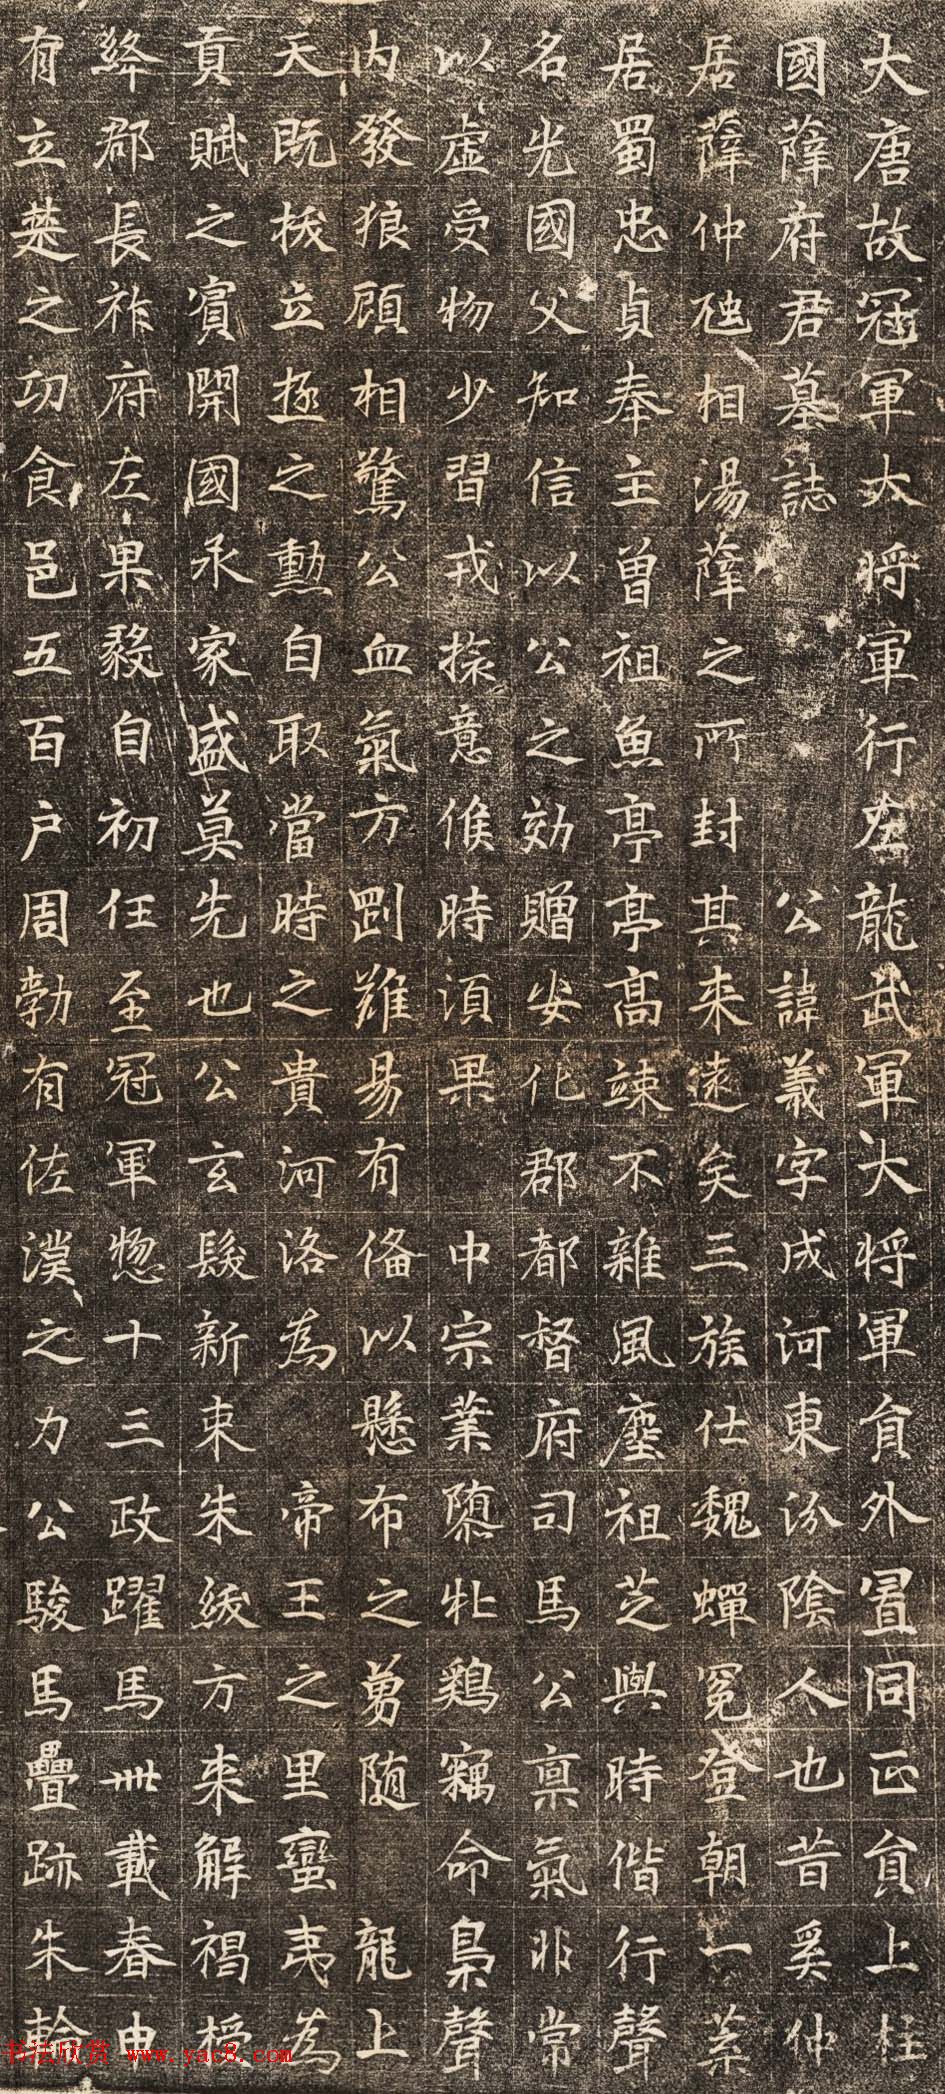 大唐故冠軍大將軍行左龍武軍大將軍員外置同正員上柱
國薛府君墓誌 公諱義字成河東汾陰人也昔奚仲
居薛仲虺相湯薛之所封其來遠矣三族仕魏蟬冕登朝一葉
居蜀忠貞奉主曾祖魚亭亭高竦不雜風塵祖芝與時偕行聲
名光國父知信以公之効贈安化郡都督府司馬公稟氣非常
以虛受物少習戎揉意候時湏果 中宗業隳牝鷄竊命梟聲
内發狼顧相驚公血氣方剛難易有俻以懸布之勇隨 龍上
天既拔立極之勳自取當時之貴河洛為 帝王之里蠻夷為
貢賦之賓開國承家盛莫先也公玄髮新束朱紱方来解褐授
絳郡長祚府左果毅自初任至冠軍惣十三政躍馬卌載春由
有立葉之功食邑五百户周勃有佐漢之力公駿馬疊跡朱輪
书法欣赏 www.yac8.com